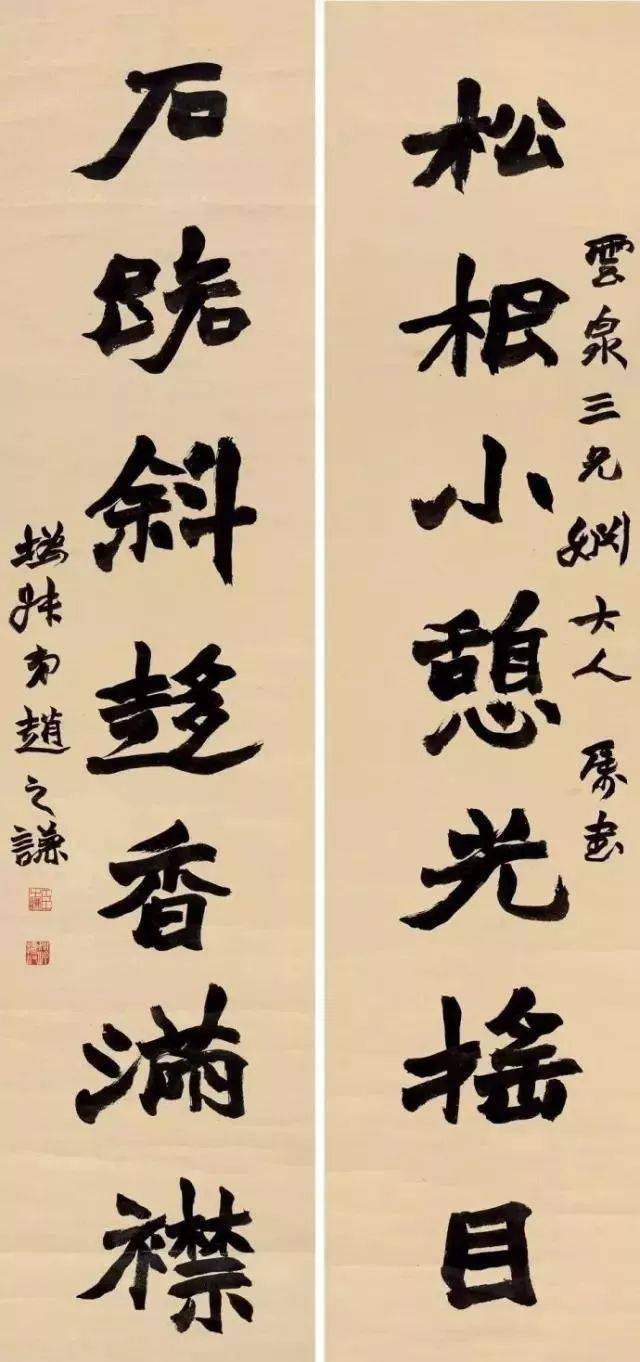 雲泉三兄婣大人屬書
松根小憩光搖目
石路斜趍香滿襟
撝叔弟趙之謙